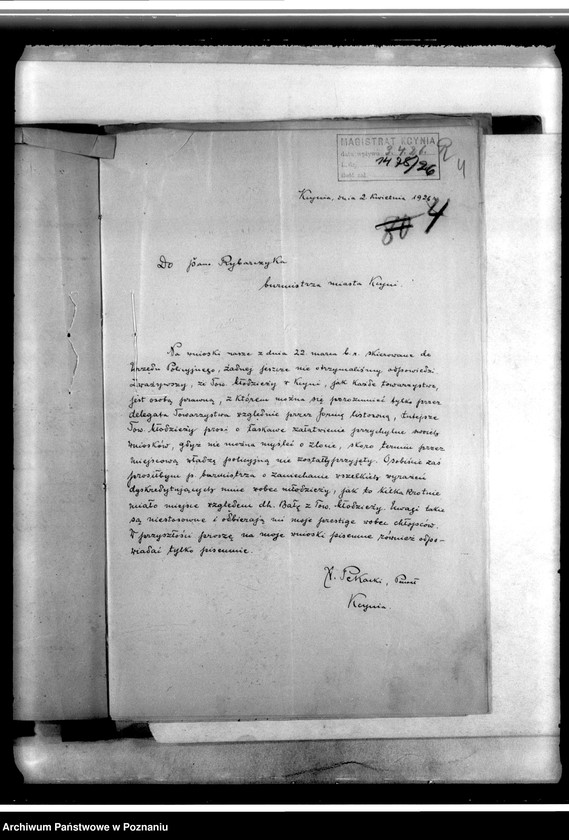 MAGISTRAT KCYNIA
3.4.26.
1475/26
4
Kcynia, dnia 2. kwietnia 1926 r.
80 4
Do Pana Rybarczyka
burmistrza miasta Kcyni.
Na wnioski nasze z dnia 22 marca b. r. skierowane do
Urzędu Policyjnego, żadnej jeszcze nie otrzymaliśmy odpowiedzi.
Zważywszy, że Tow. Młodzieży w Kcyni, jak każde towarzystwo,
jest osobą prawną, z którem można się porozumieć tylko przez
delegata Towarzystwa względnie przez formę listowną, tutejsze
Tow. Młodzieży prosi o łaskawe załatwienie przychylne swoich
wniosków, gdyż nie można myśleć o zlocie, skoro termin przez
miejscową władzę policyjną nie zostały przyjęty. Osobiście zaś
prosiłbym p. burmistrza o zaniechanie wszelkich wyrażeń
dyskredytujących mnie wobec młodzieży, jak to kilkakrotnie
miało miejsce względem dh. Bałę z Tow. Młodzieży. Uwagi takie
są niestosowne i odbierają mi moje prestige wobec chłopców.
W przyszłości proszę na moje wnioski pisemne również odpo-
wiadać tylko pisemnie.
Kcynia.
Archiwum Państwowe w Poznaniu